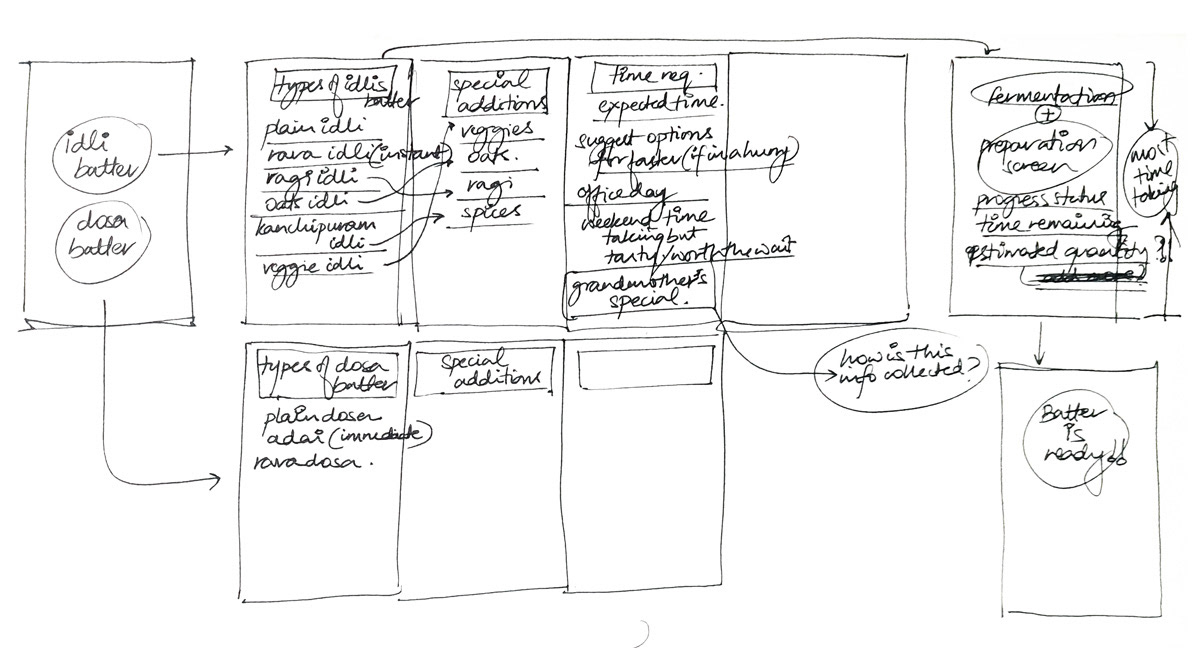 idli
batter
dosa
batter
types of idlis
batter
plain idli
rava idli (instant)
ragi idli
oats idli
kanchipuram
idli
veggie idli
special
additions
veggies
oats.
ragi
spices
time req.
expected time.
suggest options
for faster (if in a hurry)
office day
weekend time
taking but
tasty/worth the wait
grandmother's
special.
how is this
info collected?
fermentation
+
preparation
screen
progress status
time remaining
estimated quantity?!!
add more?
most
time
taking
Batter
is
ready!!
types of dosa
batter
plain dosa
adai (immediate)
rava dosa.
special
additions